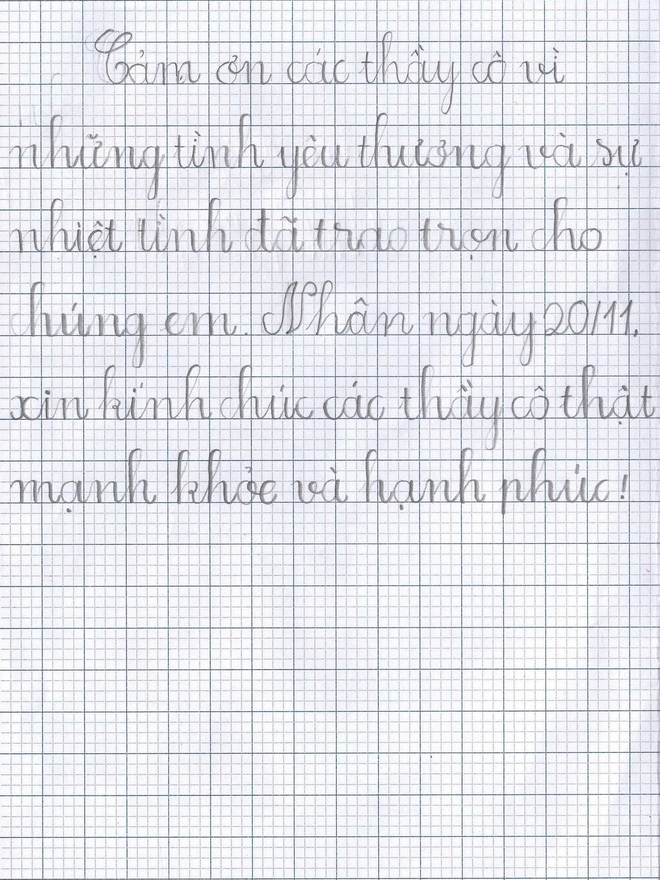 Cảm ơn các thầy cô vì
những tình yêu thương và sự
nhiệt tình đã trao trọn cho
chúng em. Nhân ngày 20/11,
xin kính chúc các thầy cô thật
mạnh khỏe và hạnh phúc!